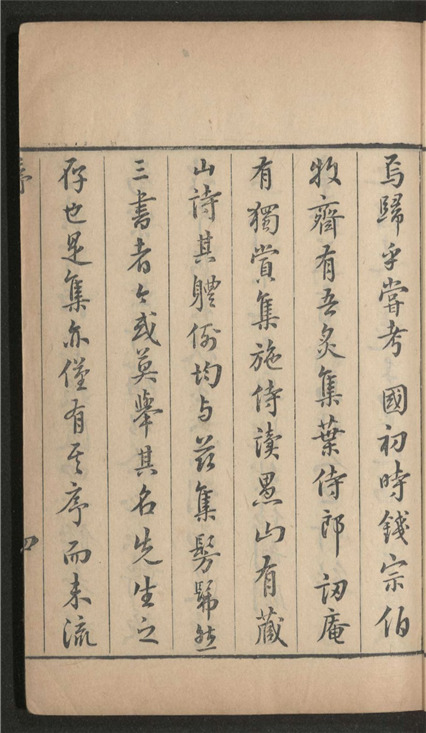 烏歸乎嘗考 國初時錢宗伯
牧齋有吾炙集葉侍郎 訒庵
有獨賞集施侍讀愚山有藏
山詩其體例均与茲集髣髴然
三書者今或莫舉其名先生之
存也是集亦僅有其序而未流
序
四